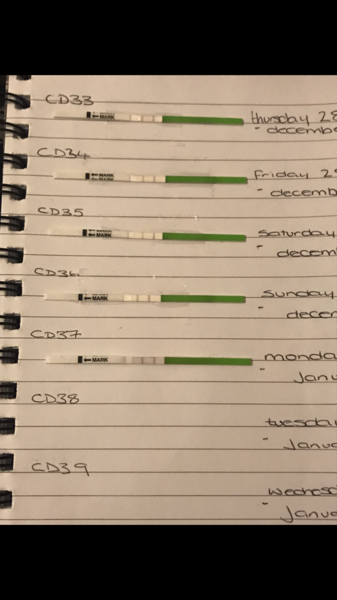 CD33
← MARK
thursday 28
- decembe
CD34
MARK
friday 2
- decemb
CD35
MARK
saturday
- decem
CD36
← MARK
sunday
decem
CD37
← MARK
monda
- Janu
CD38
tuesda
- Janua
CD39
wednesd
- Janua